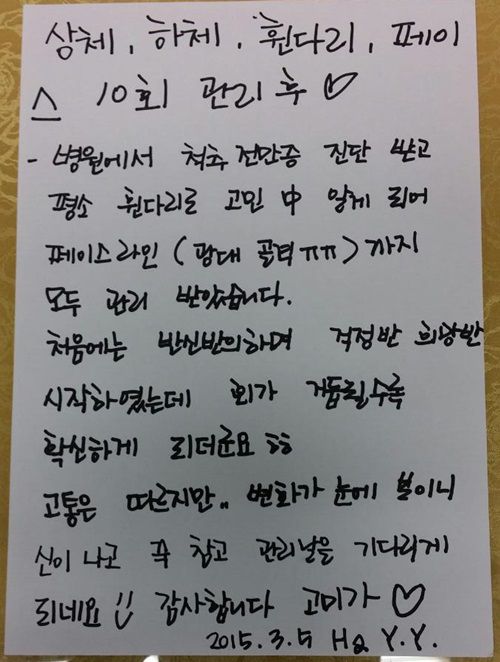 상체, 하체, 휜다리, 페이
스 10회 관리 후 ♡
- 병원에서 척추 전만증 진단 받고
평소 휜다리로 고민 中 알게 되어
페이스라인 (광대 골격ㅠㅠ) 까지
모두 관리 받았습니다.
처음에는 반신반의하며 걱정반 희망반
시작하였는데 회가 거듭될수록
확신하게 되더군요 ㅎㅎ
고통은 따르지만.. 변화가 눈에 보이니
신이 나고 꾹 참고 관리날을 기다리게
되네요 !! 감사합니다 고미가 ♡
2015. 3. 5 Y.Y.